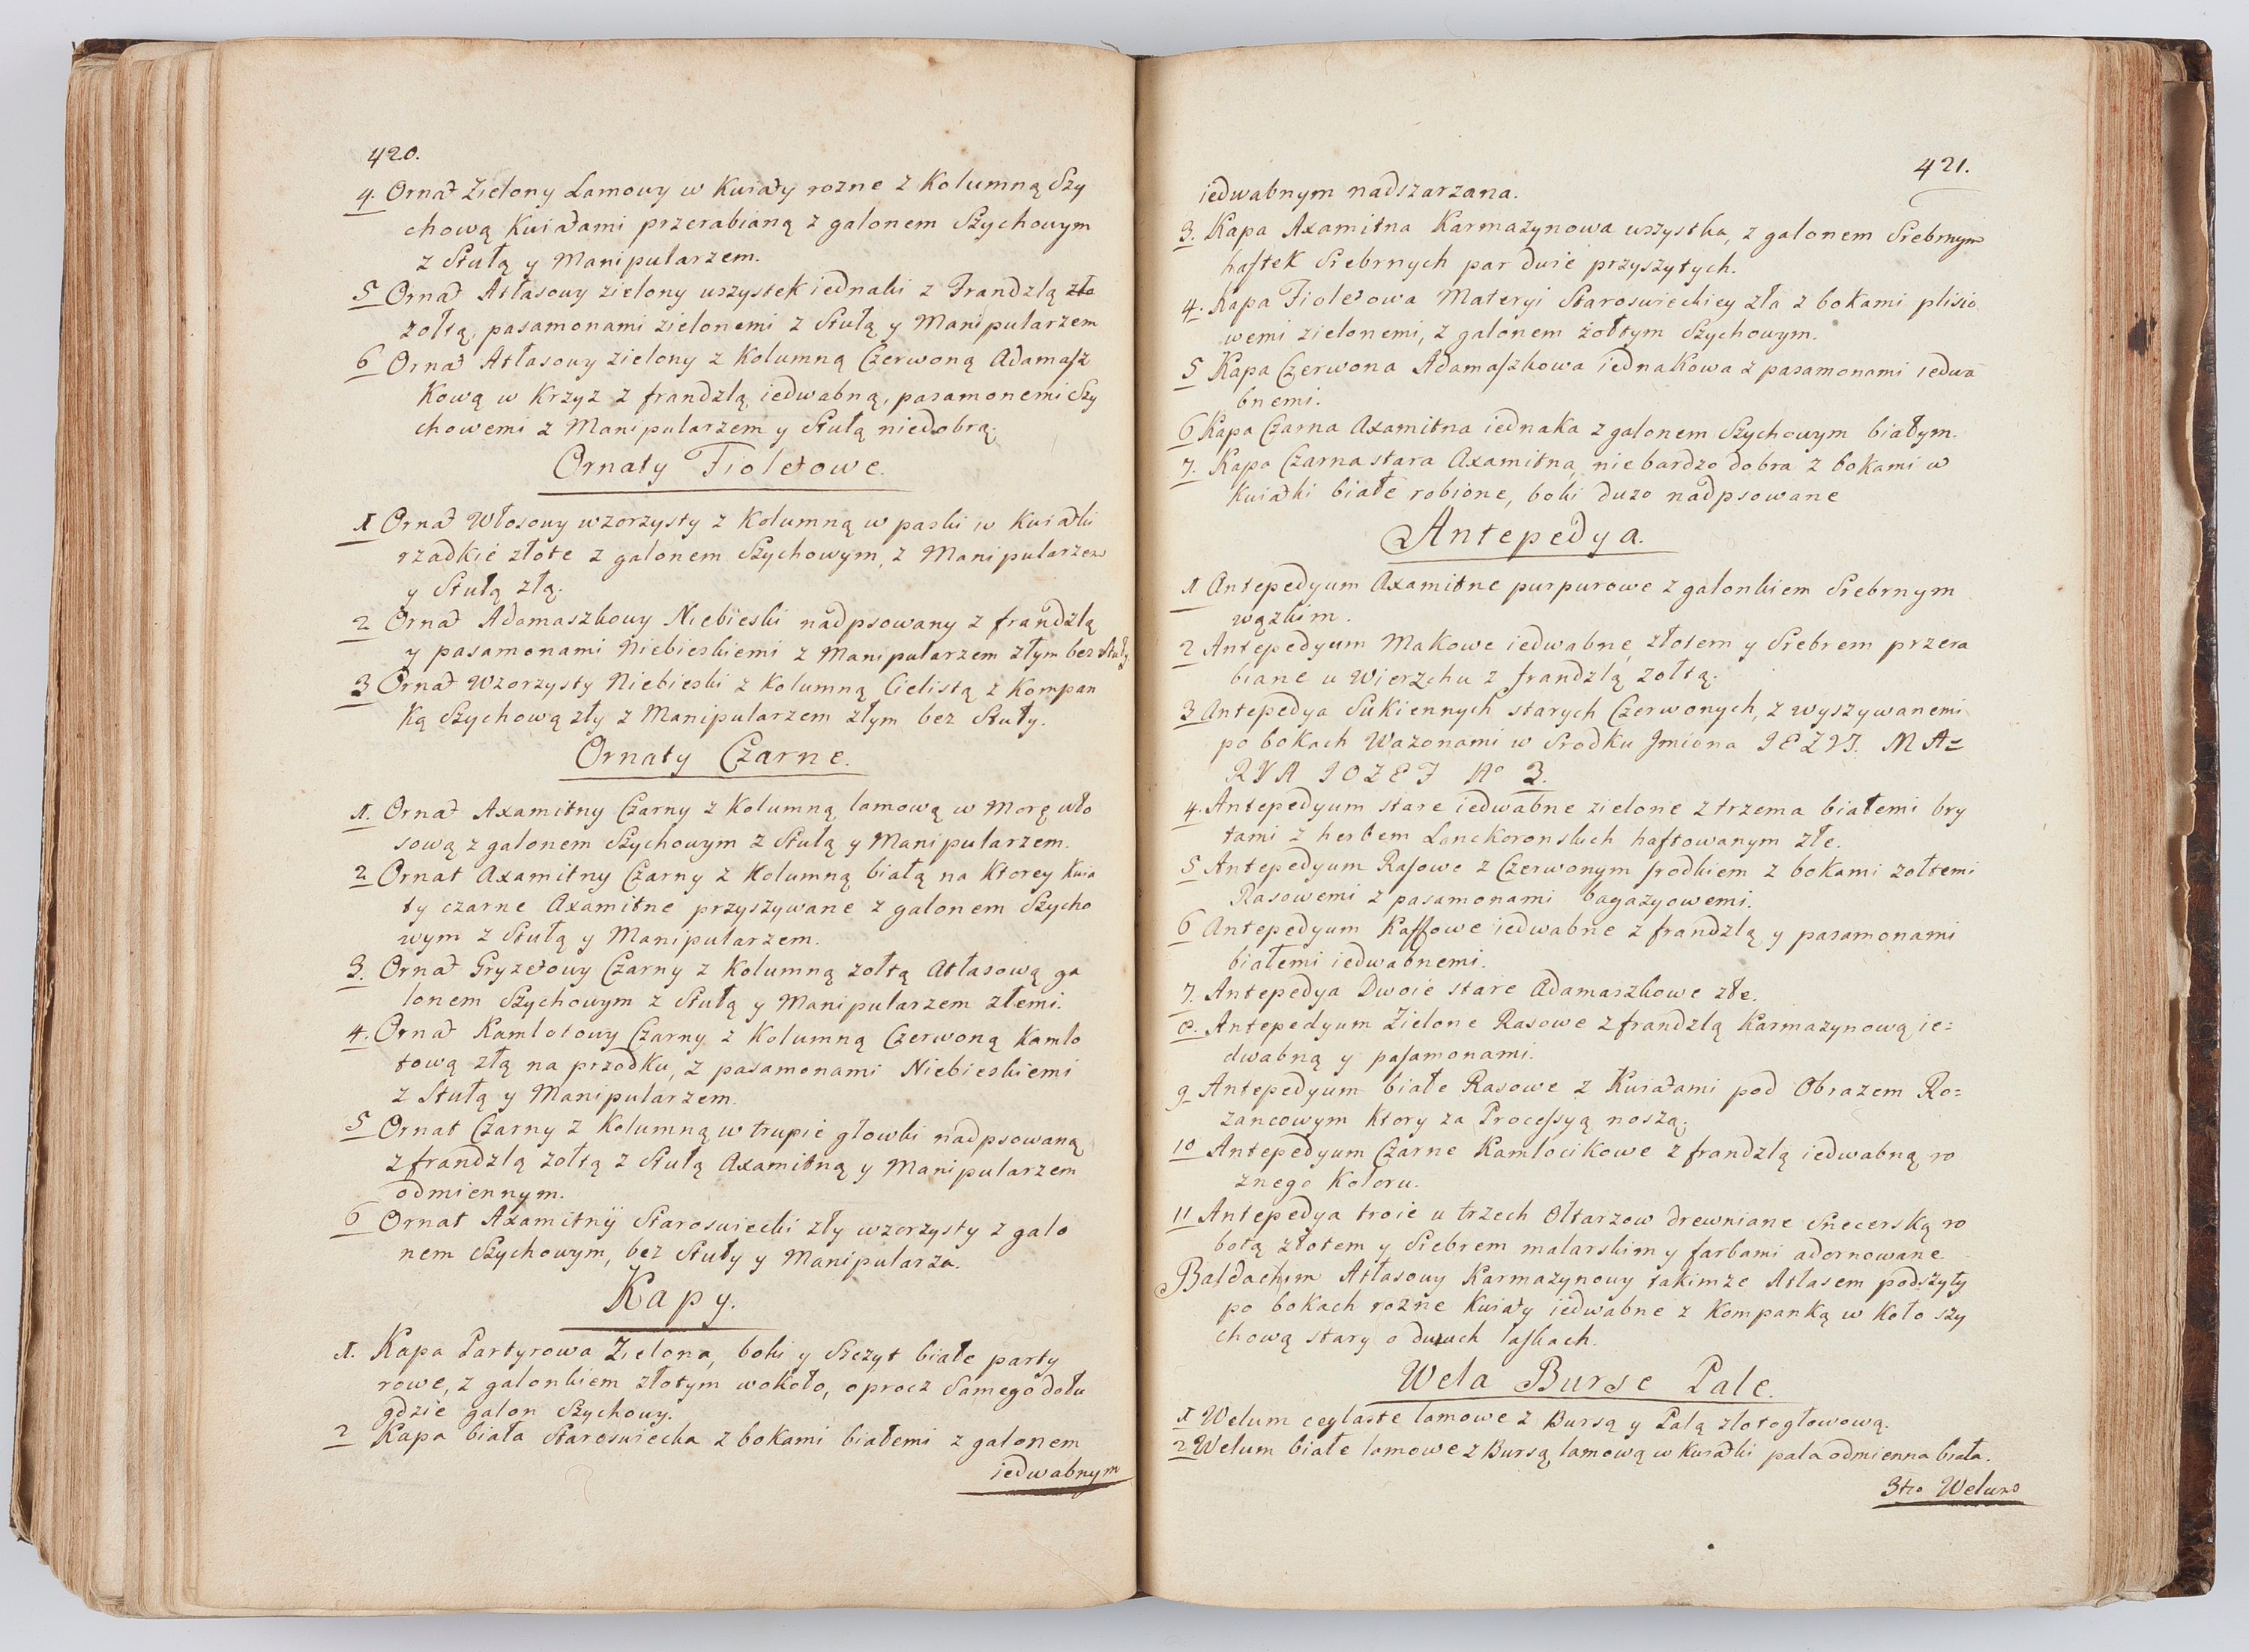 420.
4. Ornat Zielony Lamowy w Kwiaty rozne z Kolumną Szy
chową Kwiatami przerabianą z galonem Szychowym
z Stułą y Manipularzem.
5 Ornat Atłasowy zielony wszystek iednaki z Frandzlą zło
zołtą, pasamonami zielonemi z Stułą y Manipularzem
6 Ornat Atłasowy zielony z Kolumną Czerwoną Adamasz
Kową w Krzyz z frandzlą iedwabną, pasamonemi Szy
chowemi z Manipularzem y Stułą niedobrą.
Ornaty Fioletowe.
1 Ornat Włosowy wzorzysty z Kolumną w paski w Kwiatki
rzadkie złote z galonem Szychowym, z Manipularzem
y Stułą złą.
2 Ornat Adamaszkowy Niebieski nadpsowany z frandzlą
y pasamonami Niebieskiemi z Manipularzem złym bez Stuły.
3 Ornat Wzorzysty Niebieski z Kolumną Cielistą z Kompan
Ką Szychową zły z Manipularzem złym bez Stuły.
Ornaty Czarne.
1. Ornat Axamitny Czarny z Kolumną lamową w Morę wło
sową z galonem Szychowym z Stułą y Manipularzem.
2 Ornat Axamitny Czarny z Kolumną białą na Ktorey Kwia
ty czarne Axamitne przyszywane z galonem Szycho
wym z Stułą y Manipularzem.
3. Ornat Gryzetowy Czarny z Kolumną zołtą Atłasową ga
lonem Szychowym z Stułą y Manipularzem złemi.
4. Ornat Kamlotowy Czarny z Kolumną Czerwoną Kamlo
tową złą na przodku, z pasamonami Niebieskiemi
z Stułą y Manipularzem.
5 Ornat Czarny z Kolumną w trupie głowki nadpsowaną
z frandzlą zołtą z Stułą Axamitną y Manipularzem
odmiennym.
6 Ornat Axamitnÿ Staroswiecki zły wzorzysty z galo
nem Szychowym, bez Stuły y Manipularza.
Kapy.
1. Kapa Partyrowa Zielona, boki y Szczyt białe party
rowe, z galonkiem złotym wokoło, oprocz Samego dołu
gdzie galon Szychowy.
2 Kapa biała Staroswiecka z bokami białemi z galonem
iedwabnym
421.
iedwabnym nadszarzana.
3. Kapa Axamitna Karmazynowa wszystka, z galonem Srebrnym
haftek Srebrnych par dwie przyszytych.
4. Kapa Fioletowa Materyi Staroswieckiey zła z bokami plisio
wemi zielonemi, z galonem żołtym Szychowym.
5 Kapa Czerwona Adamaszkowa iednakowa z pasamonami iedwa
bnemi.
6 Kapa Czarna Axamitna iednaka z galonem Szychowym białym.
7. Kapa Czarna stara Axamitna, nie bardzo dobra z bokami w
Kwiatki białe robione, boki duzo nadpsowane
Antepedya.
1 Antepedyum Axamitne purpurowe z galonkiem Srebrnym
wązkim.
2 Antepedyum Makowe iedwabne, złotem y Srebrem przera
biane u Wierzchu z frandzlą zołtą.
3 Antepedya Sukiennych starych Czerwonych, z wyszywanemi
po bokach Wazonami w Srodku Jmiona IEZUS. MA=
RYA IOZEF No 3.
4. Antepedyum stare iedwabne zielone z trzema białemi bry
tami z herbem Lanckoronskich haftowanym złe.
5 Antepedyum Rasowe z Czerwonym srodkiem z bokami zołtemi
Rasowemi z pasamonami bagazyowemi.
6 Antepedyum Kaffowe iedwabne z frandzlą y pasamonami
białemi iedwabnemi.
7. Antepedya Dwoie stare Adamaszkowe złe.
8. Antepedyum Zielone Rasowe z frandzlą Karmazynową ie=
dwabną y pasamonami.
9 Antepedyum białe Rasowe z Kwiatami pod Obrazem Ro=
zancowym Ktory za Processyą noszą.
10 Antepedyum Czarne Kamlocikowe z frandzlą iedwabną ro
znego Koloru.
11 Antepedya troie u trzech Ołtarzow drewniane Snecerską ro
botą złotem y Srebrem malarskim y farbami adornowane
Baldachim Atłasowy Karmazynowy takimze Atłasem podszyty
po bokach rozne Kwiaty iedwabne z Kompanką w Koło szy
chową stary o dwuch laskach.
Wela Burse Pale.
1 Welum ceglaste lamowe z Bursą y Palą złotogłowową.
2 Welum białe lamowe z Bursą lamową w Kwiatki pala odmienna biała.
3tio Welum